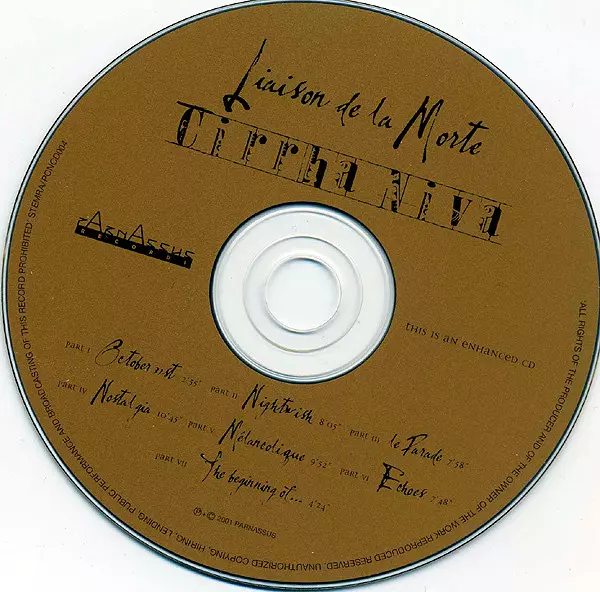 Liaison de la Morte
Cirrha Niva
PARNASSUS
RECORDS
THIS IS AN ENHANCED CD
PART I October 21st 2'35" PART II Nightwish 8'05" PART III le Parade 7'58"
PART IV Nostalgia 10'45" PART V Mélancolique 9'52" PART VI Echoes 7'48"
PART VII The beginning of... 4'24"
℗+© 2001 PARNASSUS
'ALL RIGHTS OF THE PRODUCER AND OF THE OWNER OF THE WORK REPRODUCED RESERVED. UNAUTHORIZED COPYING, HIRING, LENDING, PUBLIC PERFORMANCE AND BROADCASTING OF THIS RECORD PROHIBITED' STEMRA/PCNCD004